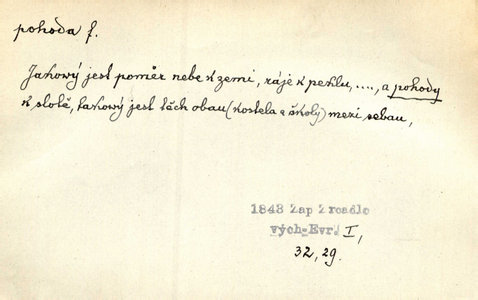 pohoda f.
Jakowý jest poměr nebe k zemi, ráje k peklu, ...., a pohody
k slotě, takowý jest těch obau (kostela a školy) mezi sebau,
1843 Zap Zrcadlo
vých-Evr. I,
32, 29.